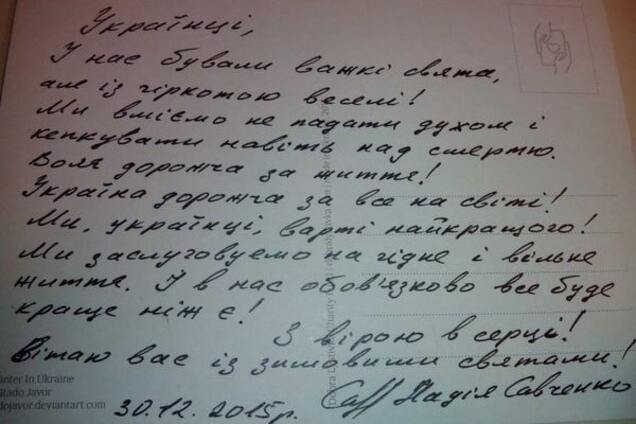 Українці,
У нас бували важкі свята,
але із гіркотою веселі!
Ми вміємо не падати духом і
кепкувати навіть над смертю.
Воля дорожча за життя!
Україна дорожча за все на світі!
Ми, українці, варті найкращого!
Ми заслуговуємо на гідне і вільне
життя. І в нас обов'язково все буде
краще ніж є!
З вірою в серці!
Вітаю вас із зимовими святами!
Надія Савченко
30.12.2015р.
inter In Ukraine
Vlado Javor
dojavor.deviantart.com